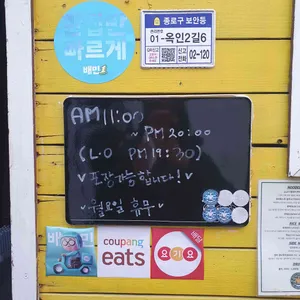 빠르게
배민
종로구 보안등
01-옥인2길6
02-120
AM 11:00
~ PM 20:00
(L.O PM 19:30)
포장가능합니다!
월요일 휴무
배민
coupang
eats
배달
요기요